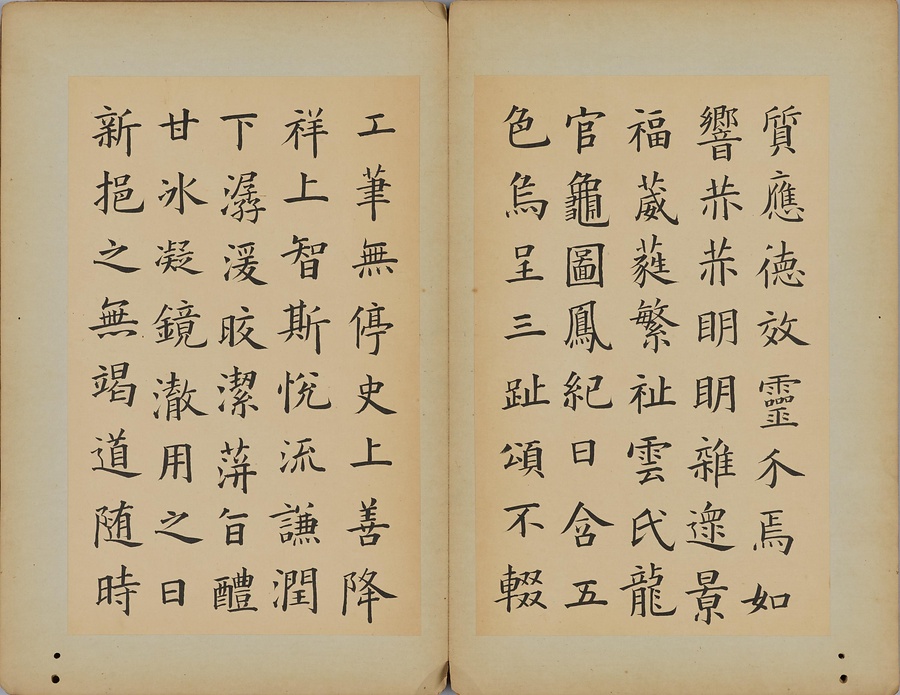 質應德效靈介焉如
響赫赫眀眀雜遝景
福葳蕤繁祉雲氏龍
官龜圖鳳紀日含五
色烏呈三趾頌不輟
工筆無停史上善降
祥上智斯悅流謙潤
下潺湲晈潔蓱旨醴
甘冰凝鏡澈用之日
新挹之無竭道随時